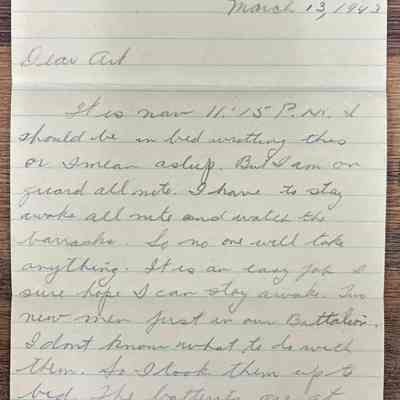 March 13, 1943
Dear Art
It is now 11:15 P.M. I
should be in bed writting this
or I mean asleep. But I am on
guard all nite. I have to stay
awake all nite and watch the
barracks. So no one will take
anything. It is an easy job I
sure hope I can stay awake. Two
new men just in our Battalion.
I dont know what to do with
them. So I took them up to
bed. The are at